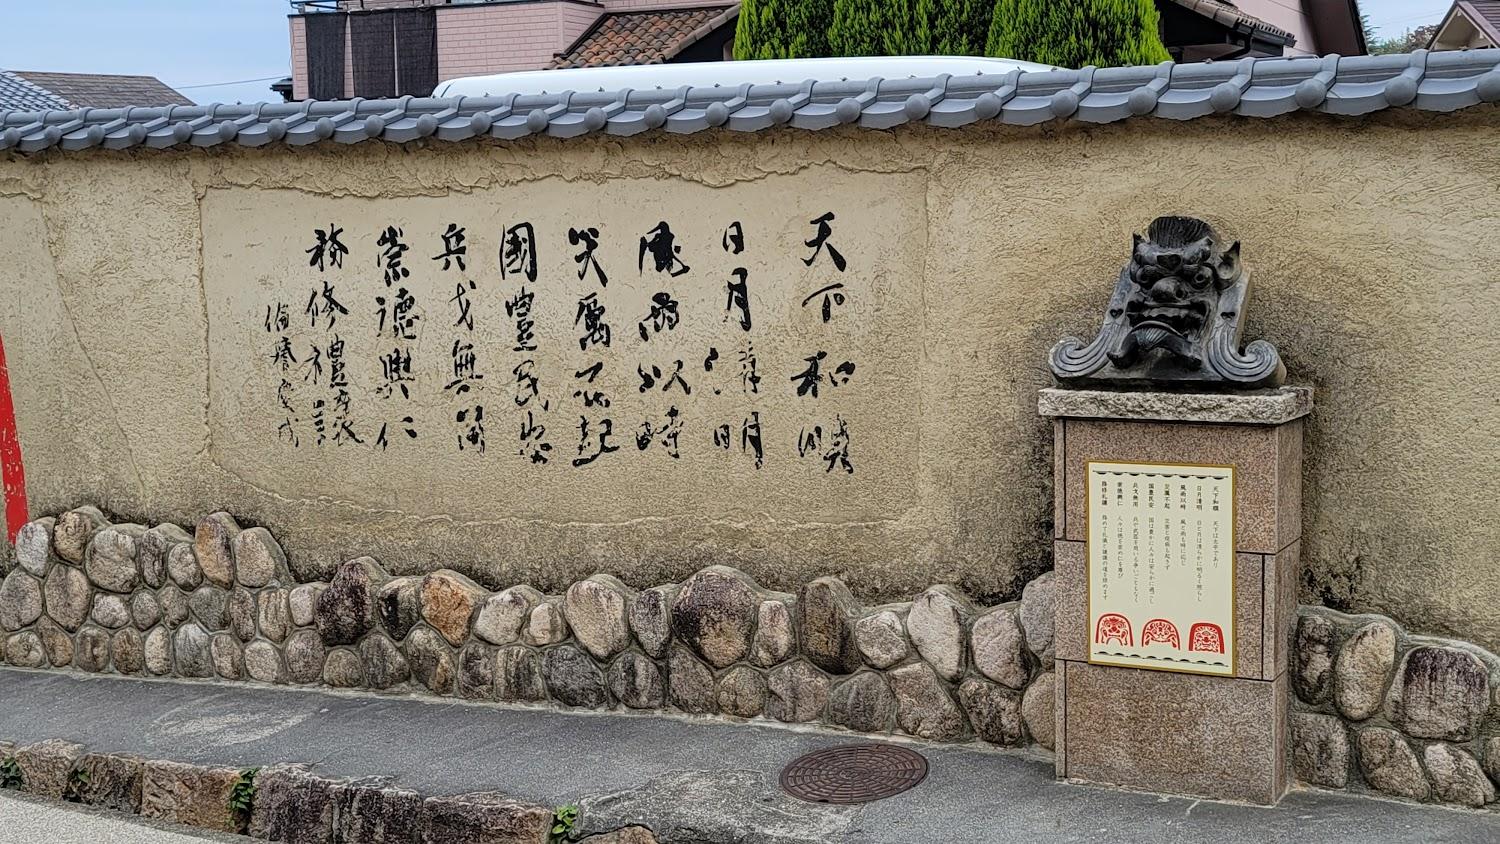 天下和順
日月清明
風雨以時
災厲不起
國豊民安
兵戈無用
崇徳興仁
務修禮讓
天下和順 天下は太平であり
日月清明 日と月は清らかに明るく照らし
風雨以時 風と雨も時に応じ
災厲不起 災害と疫病も起きず
国豊民安 国は豊かに人々は安らかに過ごし
兵戈無用 兵や武器を用いる争いごともなく
崇徳興仁 人々は徳を崇め仁を尊び
務修礼譲 務めて礼儀と謙譲の道を修めます